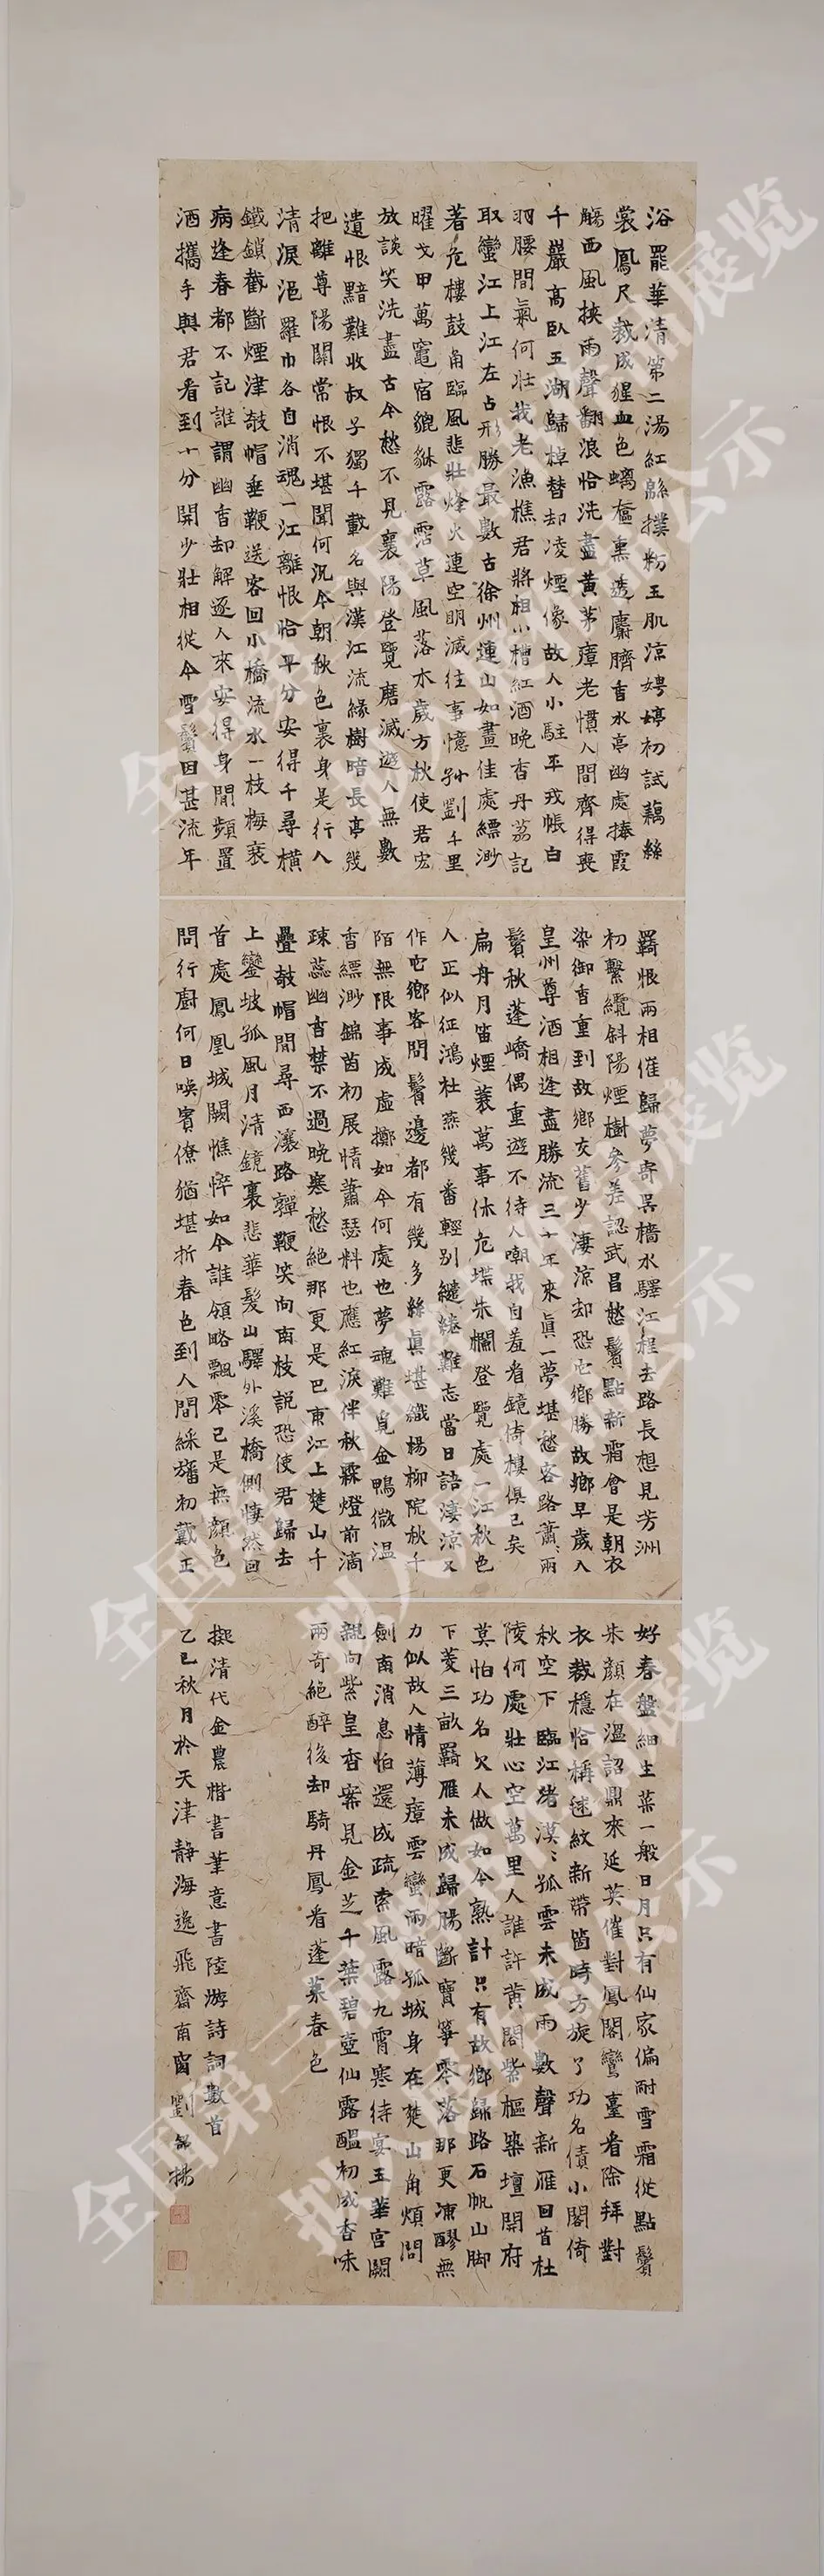 浴罷華清第二湯紅緜撲粉玉肌涼娉婷初試藕絲
裳鳳尺裁成猩血色螭奩熏透麝臍香水亭幽處捧霞
觴西風挾雨聲翻浪恰洗盡黃茅瘴老慣人間齊得喪
千巖高臥五湖歸棹替却凌煙像故人小駐平戎帳白
羽腰間氣何壯我老漁樵君將相小槽紅酒晚香丹荔記
取蠻江上江左占形勝最數古徐州連山如畫佳處縹渺
著危樓鼓角臨風悲壯烽火連空明滅往事憶孫劉千里
曜戈甲萬竈宿貔貅露霑草風落木歲方秋使君宏
放談笑洗盡古今愁不見襄陽登覽磨滅遊人無數
遺恨黯難收叔子獨千載名與漢江流綠樹暗長亭幾
把離尊陽關常恨不堪聞何況今朝秋色裏身是行人
清淚浥羅巾各自消魂一江離恨恰平分安得千尋橫
鐵鎖截斷煙津攲帽垂鞭送客回小橋流水一枝梅衰
病逢春都不記誰謂幽香却解逐人來安得身閒頻置
酒攜手與君看到十分開少壯相從今雪鬢因甚流年
羇恨兩相催歸夢寄吳檣水驛江程去路長想見芳洲
初繫纜斜陽煙樹參差認武昌愁鬢點新霜曾是朝衣
染御香重到故鄉交舊少淒涼却恐它鄉勝故鄉早歲入
皇州尊酒相逢盡勝流三十年來真一夢堪愁客路蕭蕭兩
鬢秋蓬嶠偶重遊不待人嘲我自羞看鏡倚樓俱已矣
扁舟月笛煙蓑萬事休危堞朱欄登覽處一江秋色
人正似征鴻社燕幾番輕別繾綣難忘當日語淒涼又
作它鄉客問鬢邊都有幾多絲真堪織楊柳院秋千
陌無限事成虛擲如今何處也夢魂難覓金鴨微溫
香縹渺錦茵初展情蕭瑟料也應紅淚伴秋霖燈前滴
疎蕊幽香禁不過晚寒愁絕那更是巴東江上楚山千
疊攲帽閒尋西瀼路嚲鞭笑向南枝說恐使君歸去
上鑾坡孤風月清鏡裏悲華髮山驛外溪橋側悽然回
首處鳳凰城闕憔悴如今誰領略飄零已是無顏色
問行廚何日喚賓僚猶堪折春色到人間綵旛初戴正
好春盤細生菜一般日月只有仙家偏耐雪霜從點鬢
朱顏在溫詔鼎來延英催對鳳閣鸞臺看除拜對
衣裁穩恰稱毬紋新帶箇時方旋了功名債小閣倚
秋空下臨江渚漠漠孤雲未成雨數聲新雁回首杜
陵何處壯心空萬里人誰許黃閣紫樞築壇開府
莫怕功名欠人做如今熟計只有故鄉歸路石帆山脚
下菱三畝羇雁未成歸腸斷寶箏零落那更凍醪無
力似故人情薄瘴雲蠻雨暗孤城身在楚山角煩問
劍南消息怕還成疏索風露九霄寒待宴玉華宮闕
親向紫皇香案見金芝千葉碧壺仙露醞初成香味
兩奇絕醉後却騎丹鳳看蓬萊春色
擬清代金農楷書筆意書陸游詩詞數首
乙巳秋月於天津靜海逸飛齋南窗劉揚